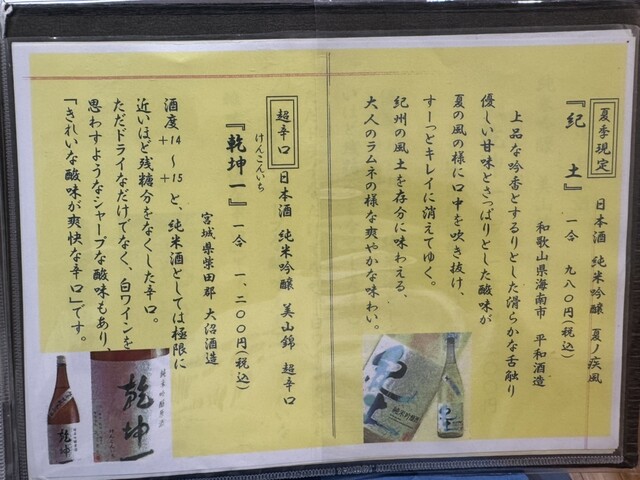 夏季現定
日本酒 純米吟醸 夏ノ疾風
『紀 土』 一合 九八〇円(税込)
和歌山県海南市 平和酒造
上品な吟香とするりとした滑らかな舌触り
優しい甘味とさっぱりとした酸味が
夏の風の様に口中を吹き抜け、
すーっとキレイに消えてゆく。
紀州の風土を存分に味わえる、
大人のラムネの様な爽やかな味わい。
紀土
純米吟醸
超辛口
日本酒 純米吟醸 美山錦 超辛口
けんこんいち
『乾坤一』 一合 一、二〇〇円(税込)
宮城県柴田郡 大沼酒造
酒度+14~+15と、純米酒としては極限に
近いほど残糖分をなくした辛口。
ただドライなだけでなく、白ワインを
思わすようなシャープな酸味もあり、
「きれいな酸味が爽快な辛口」です。
純米吟醸原酒
乾坤一
乾坤一